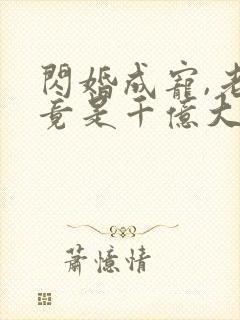 閃婚成寵,老
竟是千億大
蕭憶情